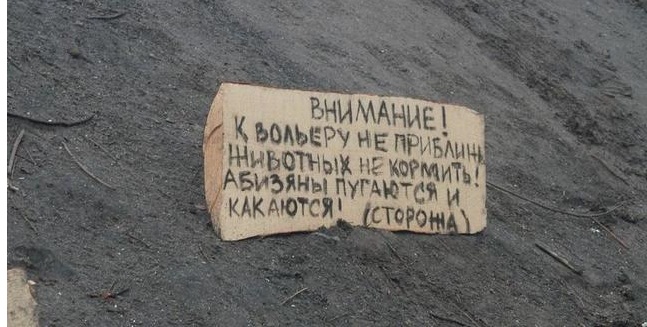 ВНИМАНИЕ!
К ВОЛЬЕРУ НЕ ПРИБЛИЖ
ЖИВОТНЫХ НЕ КОРМИТЬ!
АБИЗЯНЫ ПУГАЮТСЯ И
КАКАЮТСЯ! (СТОРОЖА)